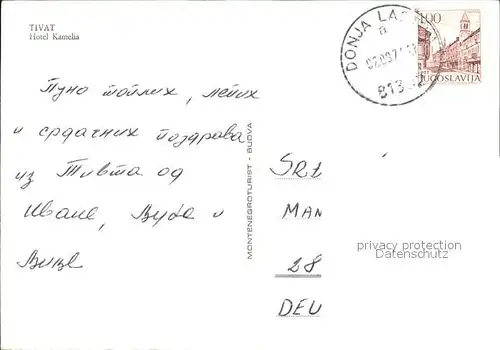 TIVAT
Hotel Kamelia
Пуно топлих, лепих
и срдачних поздрава
из Тивта од
Иване, и
MONTENEGROTURIST - BUDVA
DONJA
1.00
JUGOSLAVIJA
SRE
MAN
28
DEU
privacy protection
Datenschutz